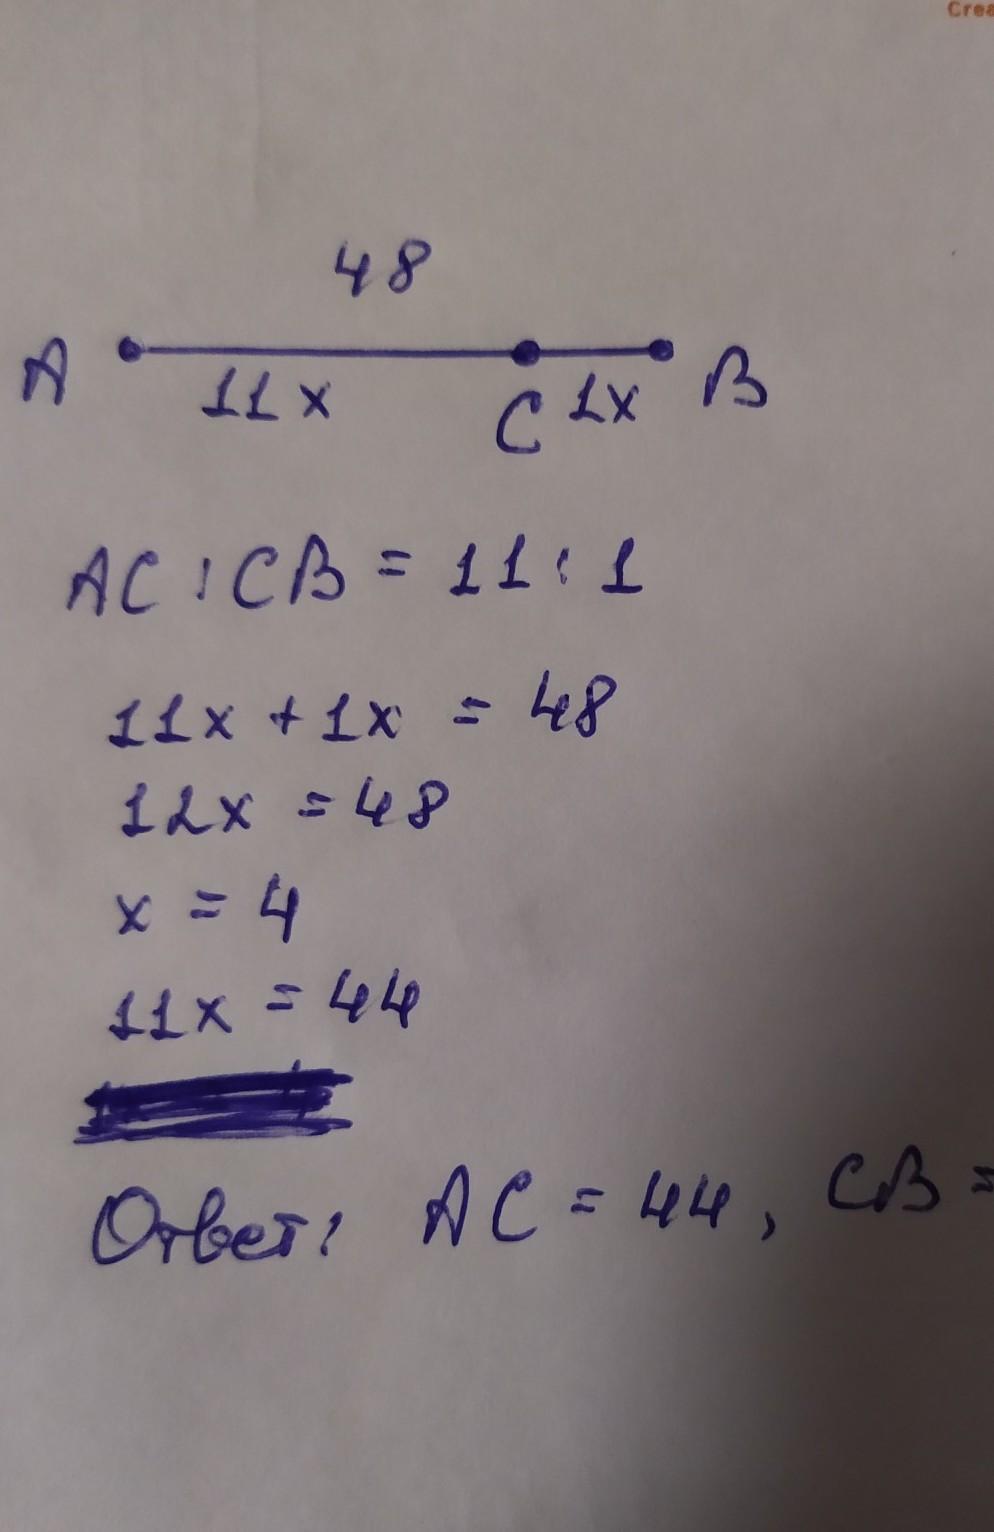 Crea
48
A 11x C 1x B
AC : CB = 11 : 1
11x + 1x = 48
12x = 48
x = 4
11x = 44
Ответ: AC = 44, CB =